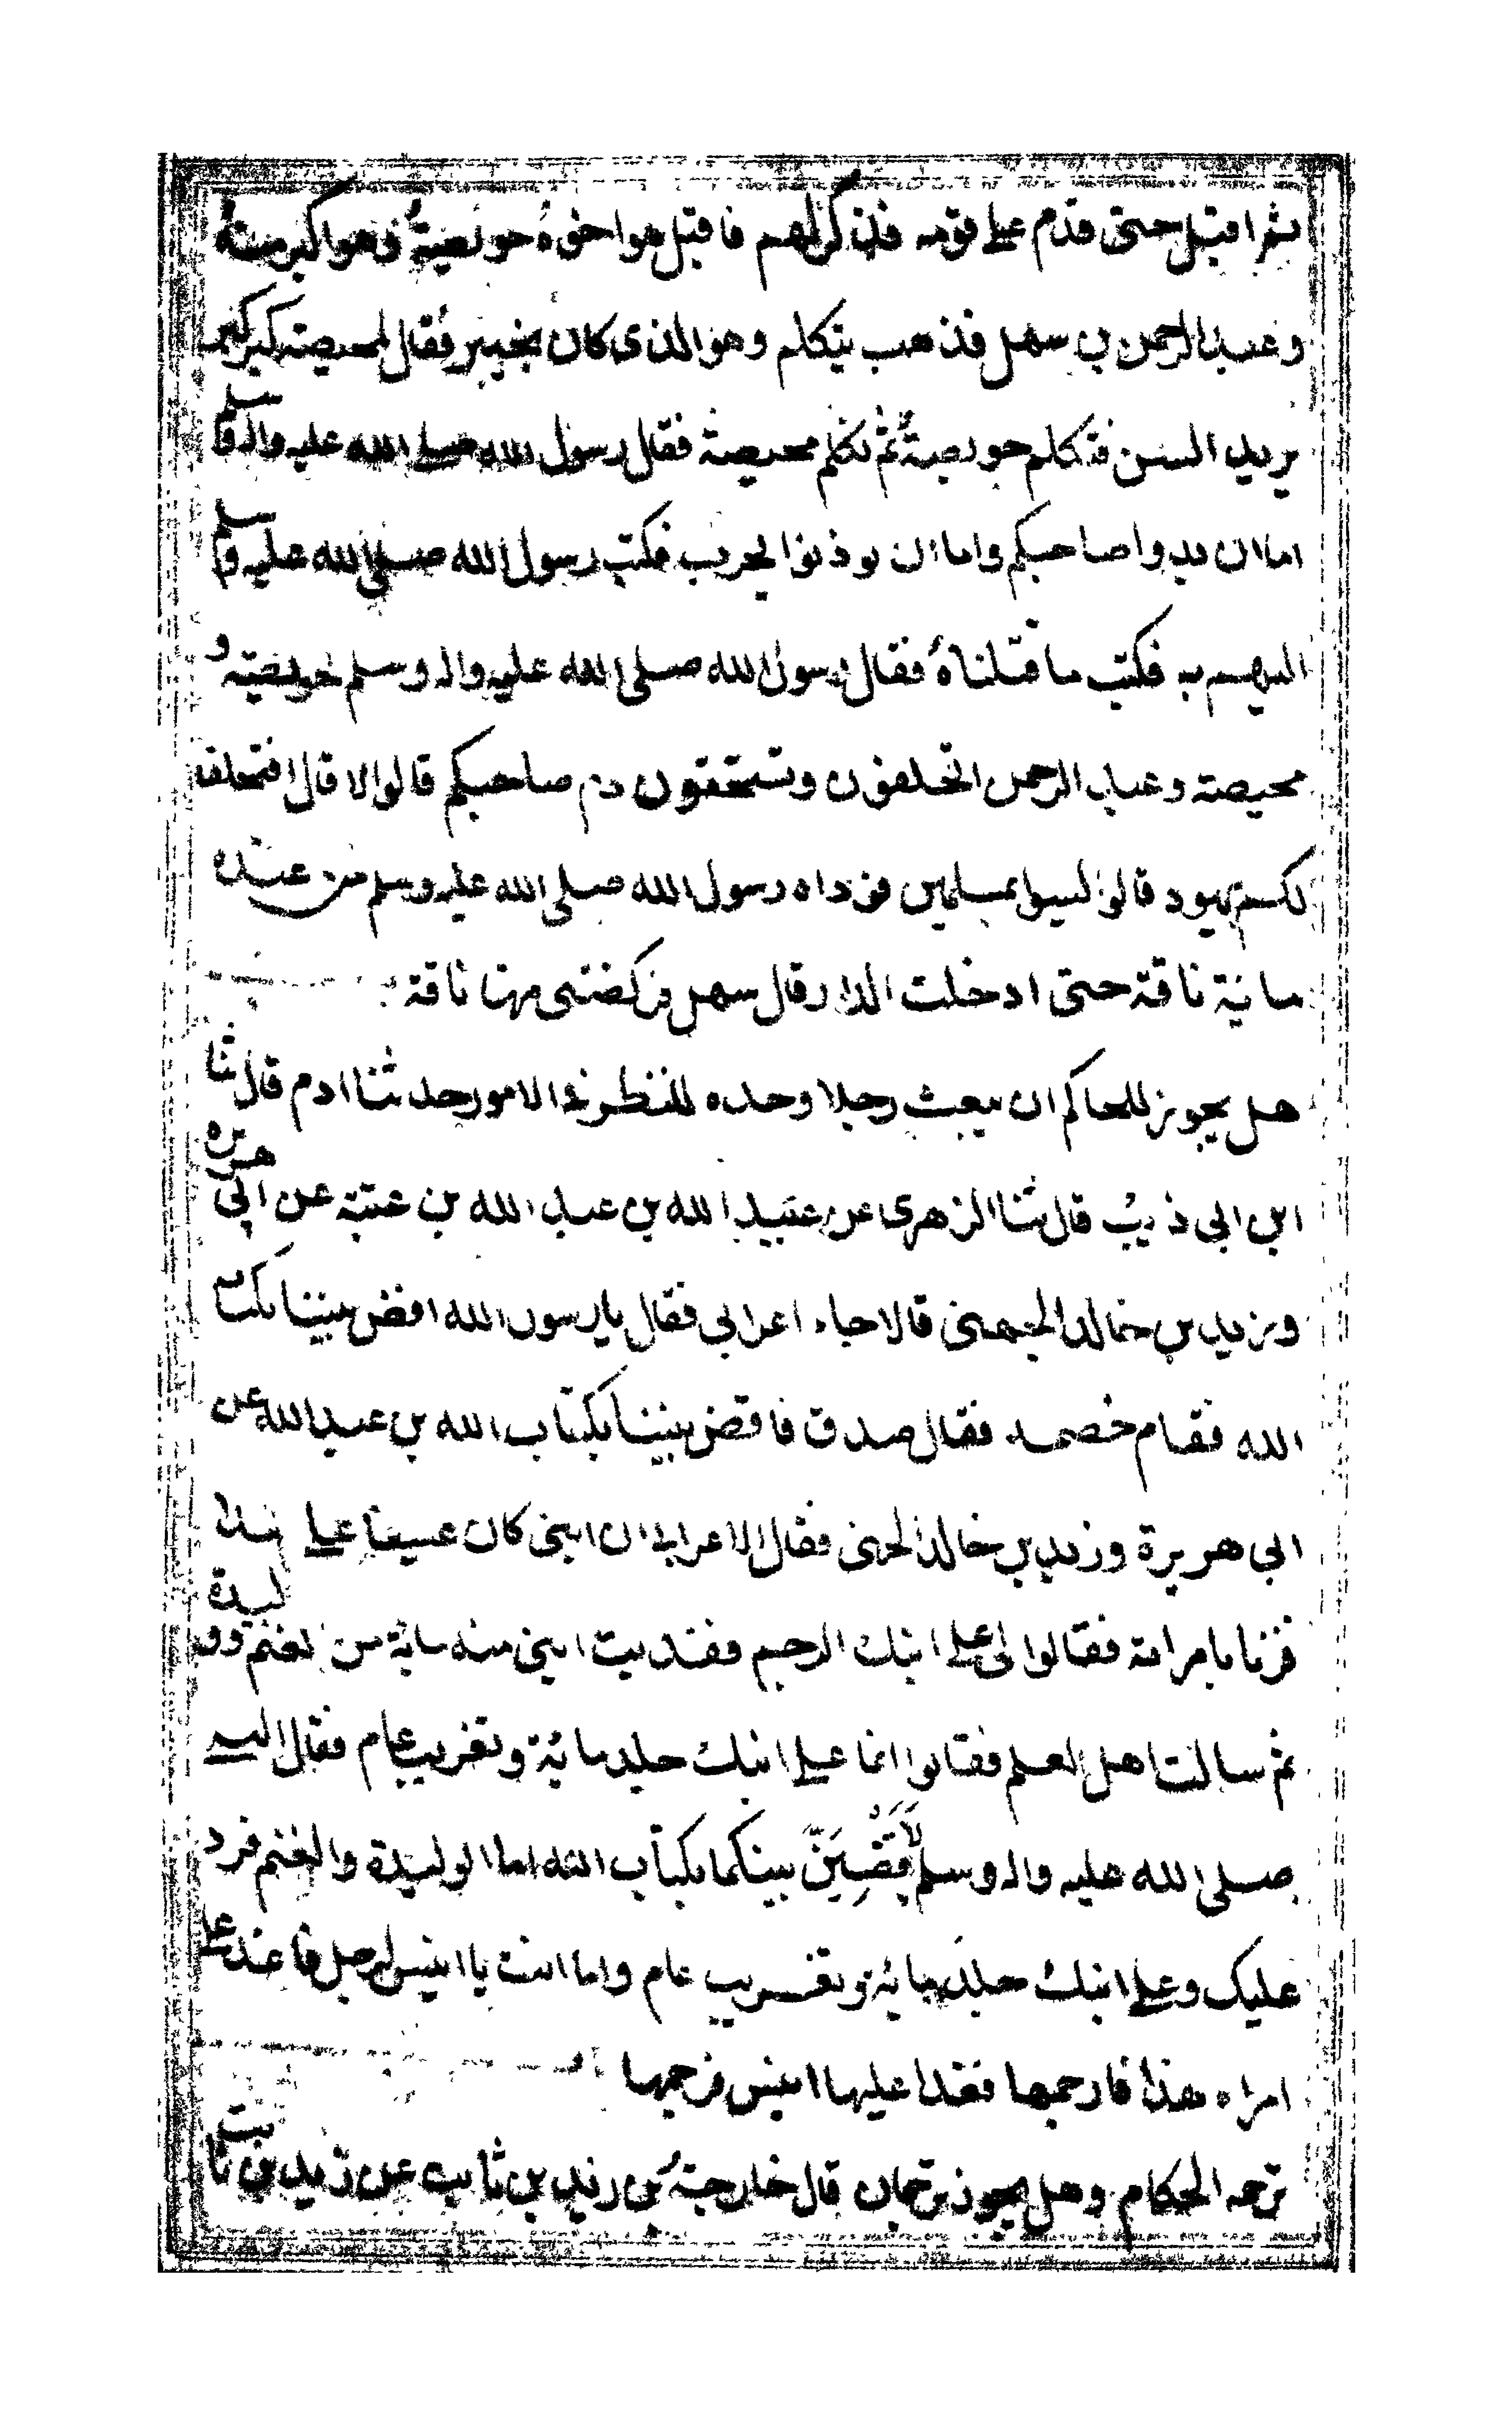 ثم اقبل حتى قدم على قومه فذكر لهم فاقبل هو اخوه حويصة وهو اكبر منه
وعبد الرحمن بن سهل فذهب يتكلم وهو الذى كان بخيبر فقال لمحيصة كبر كبر
يريد السن فتكلم حويصة ثم تكلم محيصة فقال رسول الله صلى الله عليه واله وسلم
اما ان يدوا صاحبكم واما ان يوذنوا بحرب فكتب رسول الله صلى الله عليه وسلم
اليهم به فكتب ما قتلناه فقال رسول الله صلى الله عليه واله وسلم لحويصة و
محيصة وعبد الرحمن اتحلفون وتستحقون دم صاحبكم قالوا لا قال افتحلف
لكم يهود قالوا ليسوا بمسلمين فوداه رسول الله صلى الله عليه وسلم من عنده
مائة ناقة حتى ادخلت الدار قال سهل فركضتنى منها ناقة
هل يجوز للحاكم ان يبعث رجلا وحده للنظر فى الامور حدثنا ادم قال ثنا
ابن ابى ذيب قال ثنا الزهرى عن عبيد الله بن عبد الله بن عتبة عن ابى هريره
وزيد بن خالد الجهنى قالا جاء اعرابى فقال يا رسول الله اقض بيننا بكتاب
الله فقام خصمه فقال صدق فاقض بيننا بكتاب الله بن عبد الله عن
ابى هريرة وزيد بن خالد الجهنى فقال الاعرابى ان ابنى كان عسيفا على هذا
فزنا بامراته فقالوا لى على ابنك الرجم ففديت ابنى منه بمائة من الغنم ووليدة
ثم سالت اهل العلم فقالوا انما على ابنك جلد مائة وتغريب عام فقال النبى
صلى الله عليه واله وسلم لاقضين بينكما بكتاب الله اما الوليدة والغنم فرد
عليك وعلى ابنك جلد مائة وتغريب عام واما انت يا انيس لرجل فاغد على
امراة هذا فارجمها فغدا عليها انيس فرجمها
ترجمه الحكام وهل يجوز ترجمان قال خارجة بن زيد بن ثابت عن زيد بن ثابت